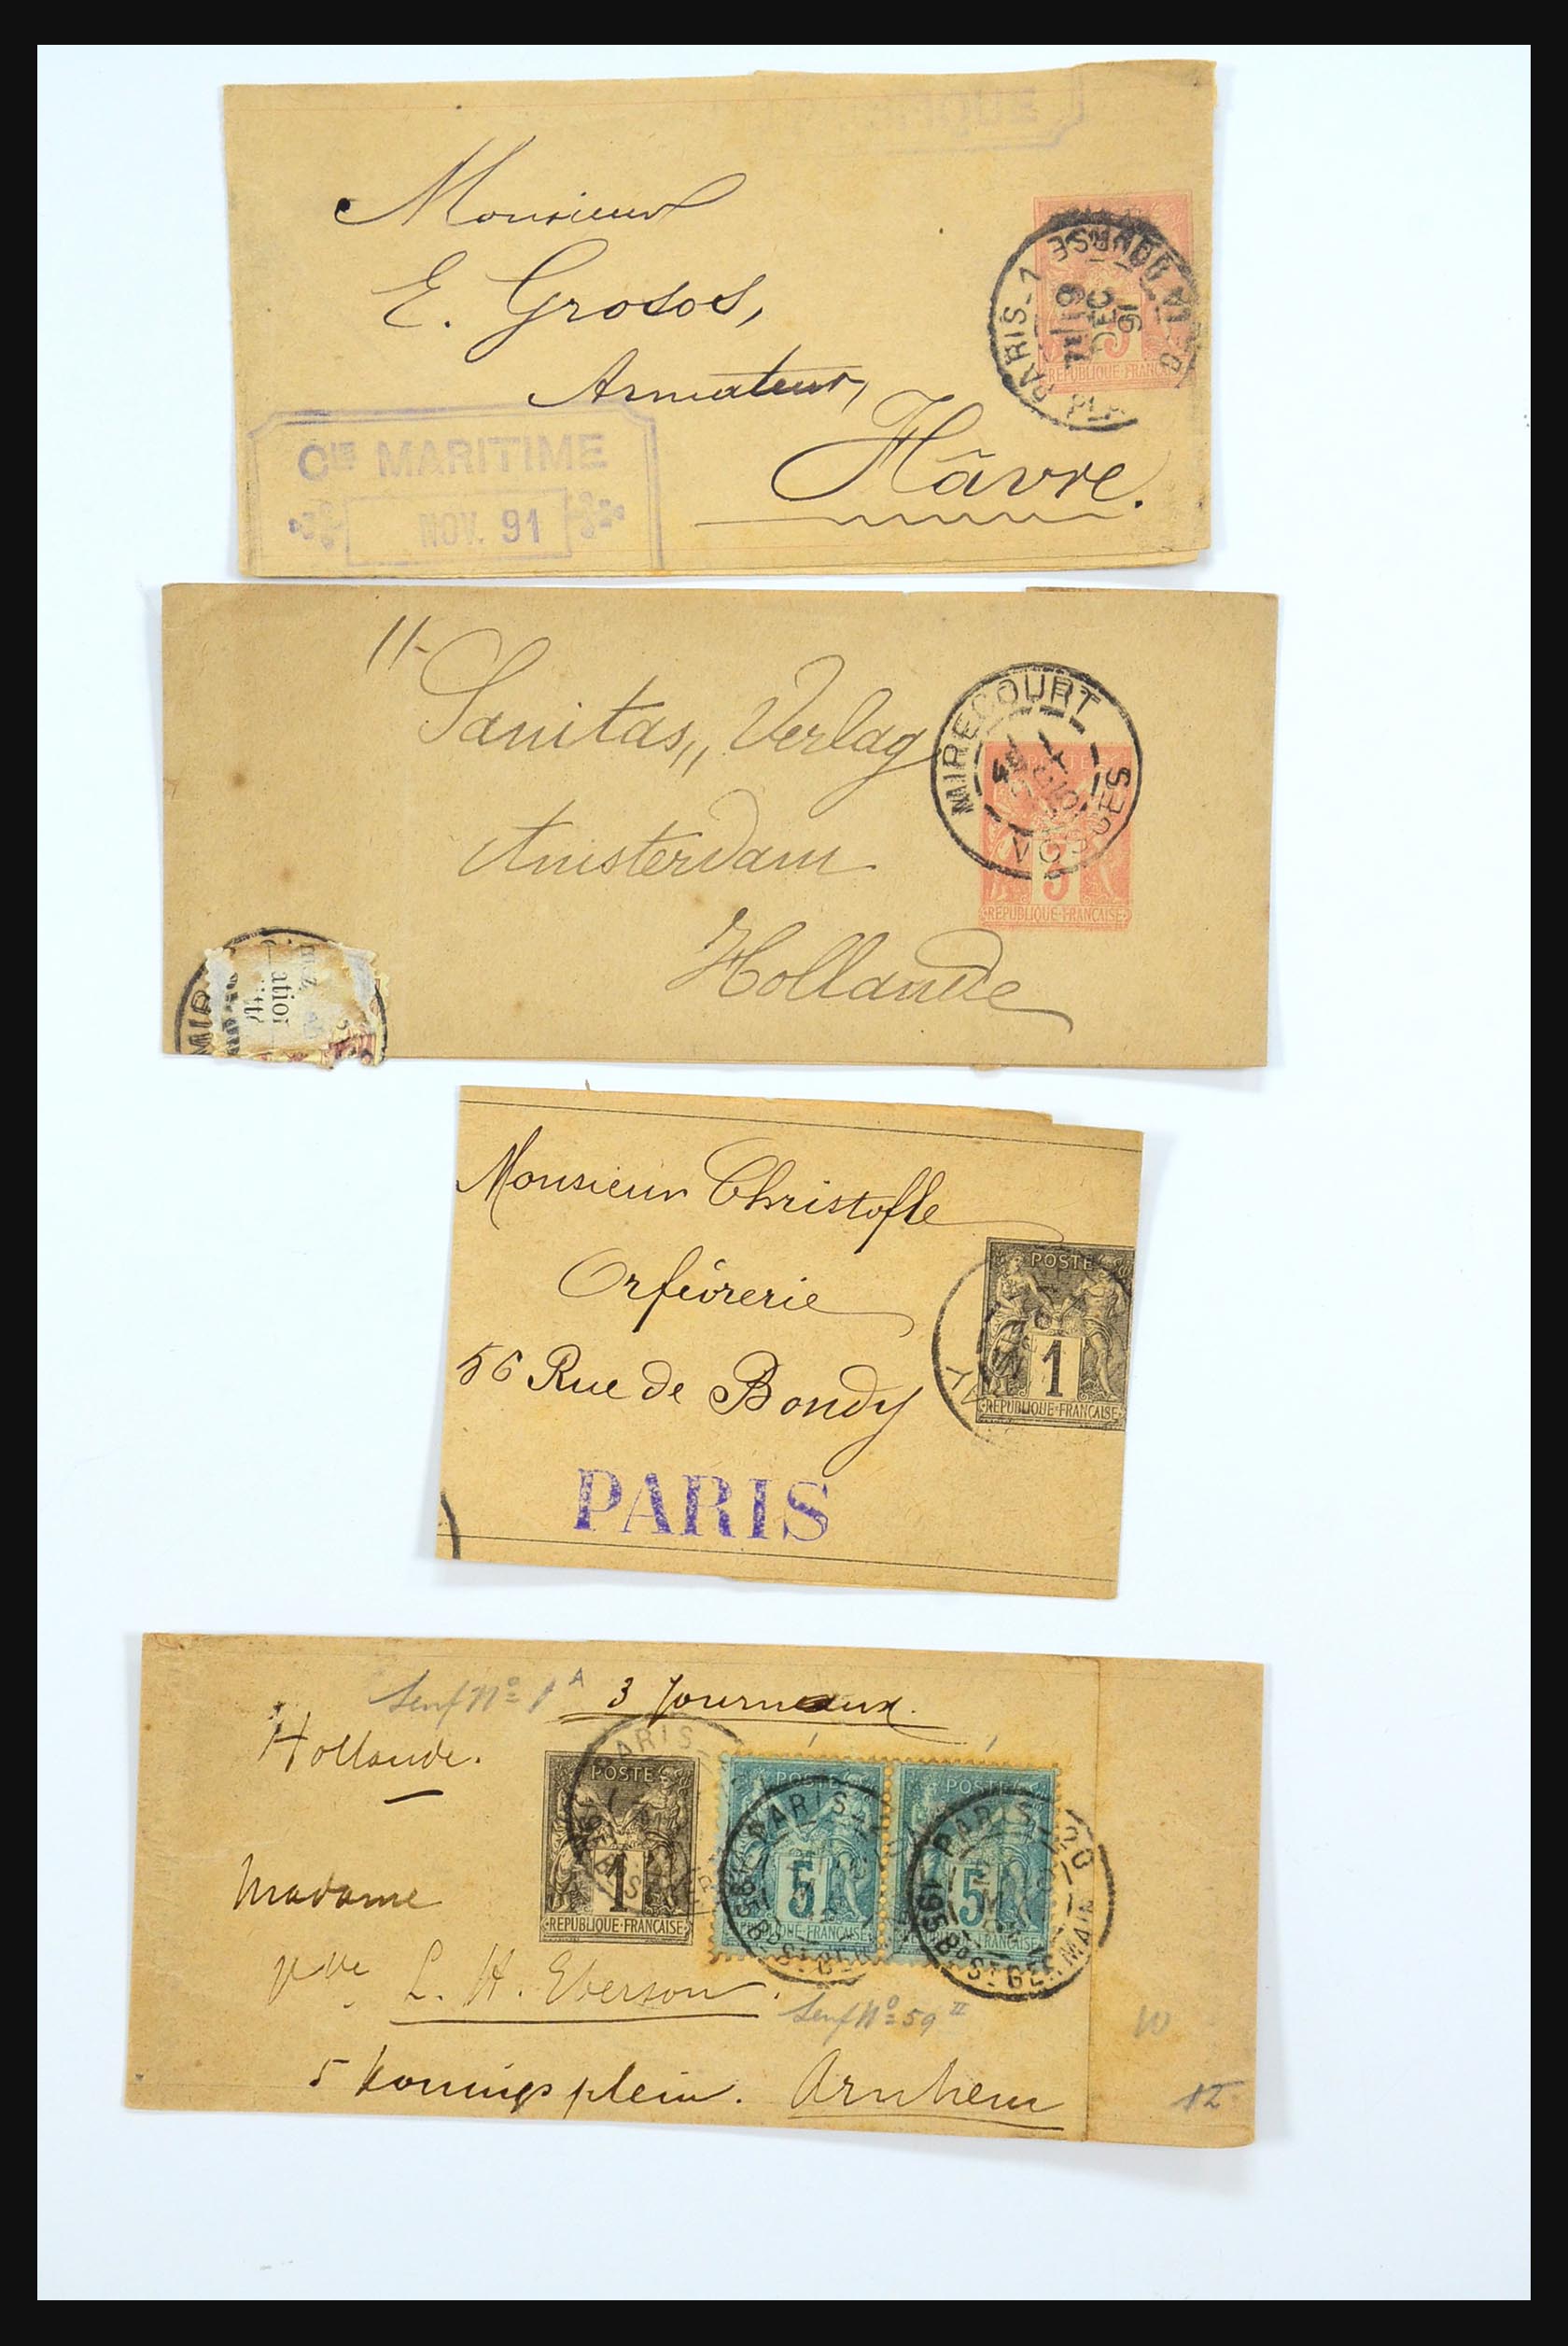 RIQUE
Monsieur
E. Grosos,
Armateur,
Hâvre.
PARIS-1
PL. DE LA BOURSE
7E/19
DEC
91
3
REPUBLIQUE FRANÇAISE
CIE MARITIME
NOV. 91
11-
Sanitas,, Verlag
Amsterdam
Hollande
MIRECOURT
VOSGES
3
REPUBLIQUE FRANÇAISE
MIR
Monsieur Christofle
Orfévrerie
56 Rue de Bondy
PARIS
POSTE
1
REPUBLIQUE FRANÇAISE
Senf No 1A
3 Journaux.
Hollande.
Madame
L. H. Eberson.
5 Konings plein. Arnhem
PARIS
POSTE
1
REPUBLIQUE FRANÇAISE
POSTE
5
REPUBLIQUE FRANÇAISE
PARIS
195 Bd ST GERMAIN
POSTE
5
REPUBLIQUE FRANÇAISE
PARIS-20
195 Bd ST GERMAIN
Senf No 59 II
10
12-